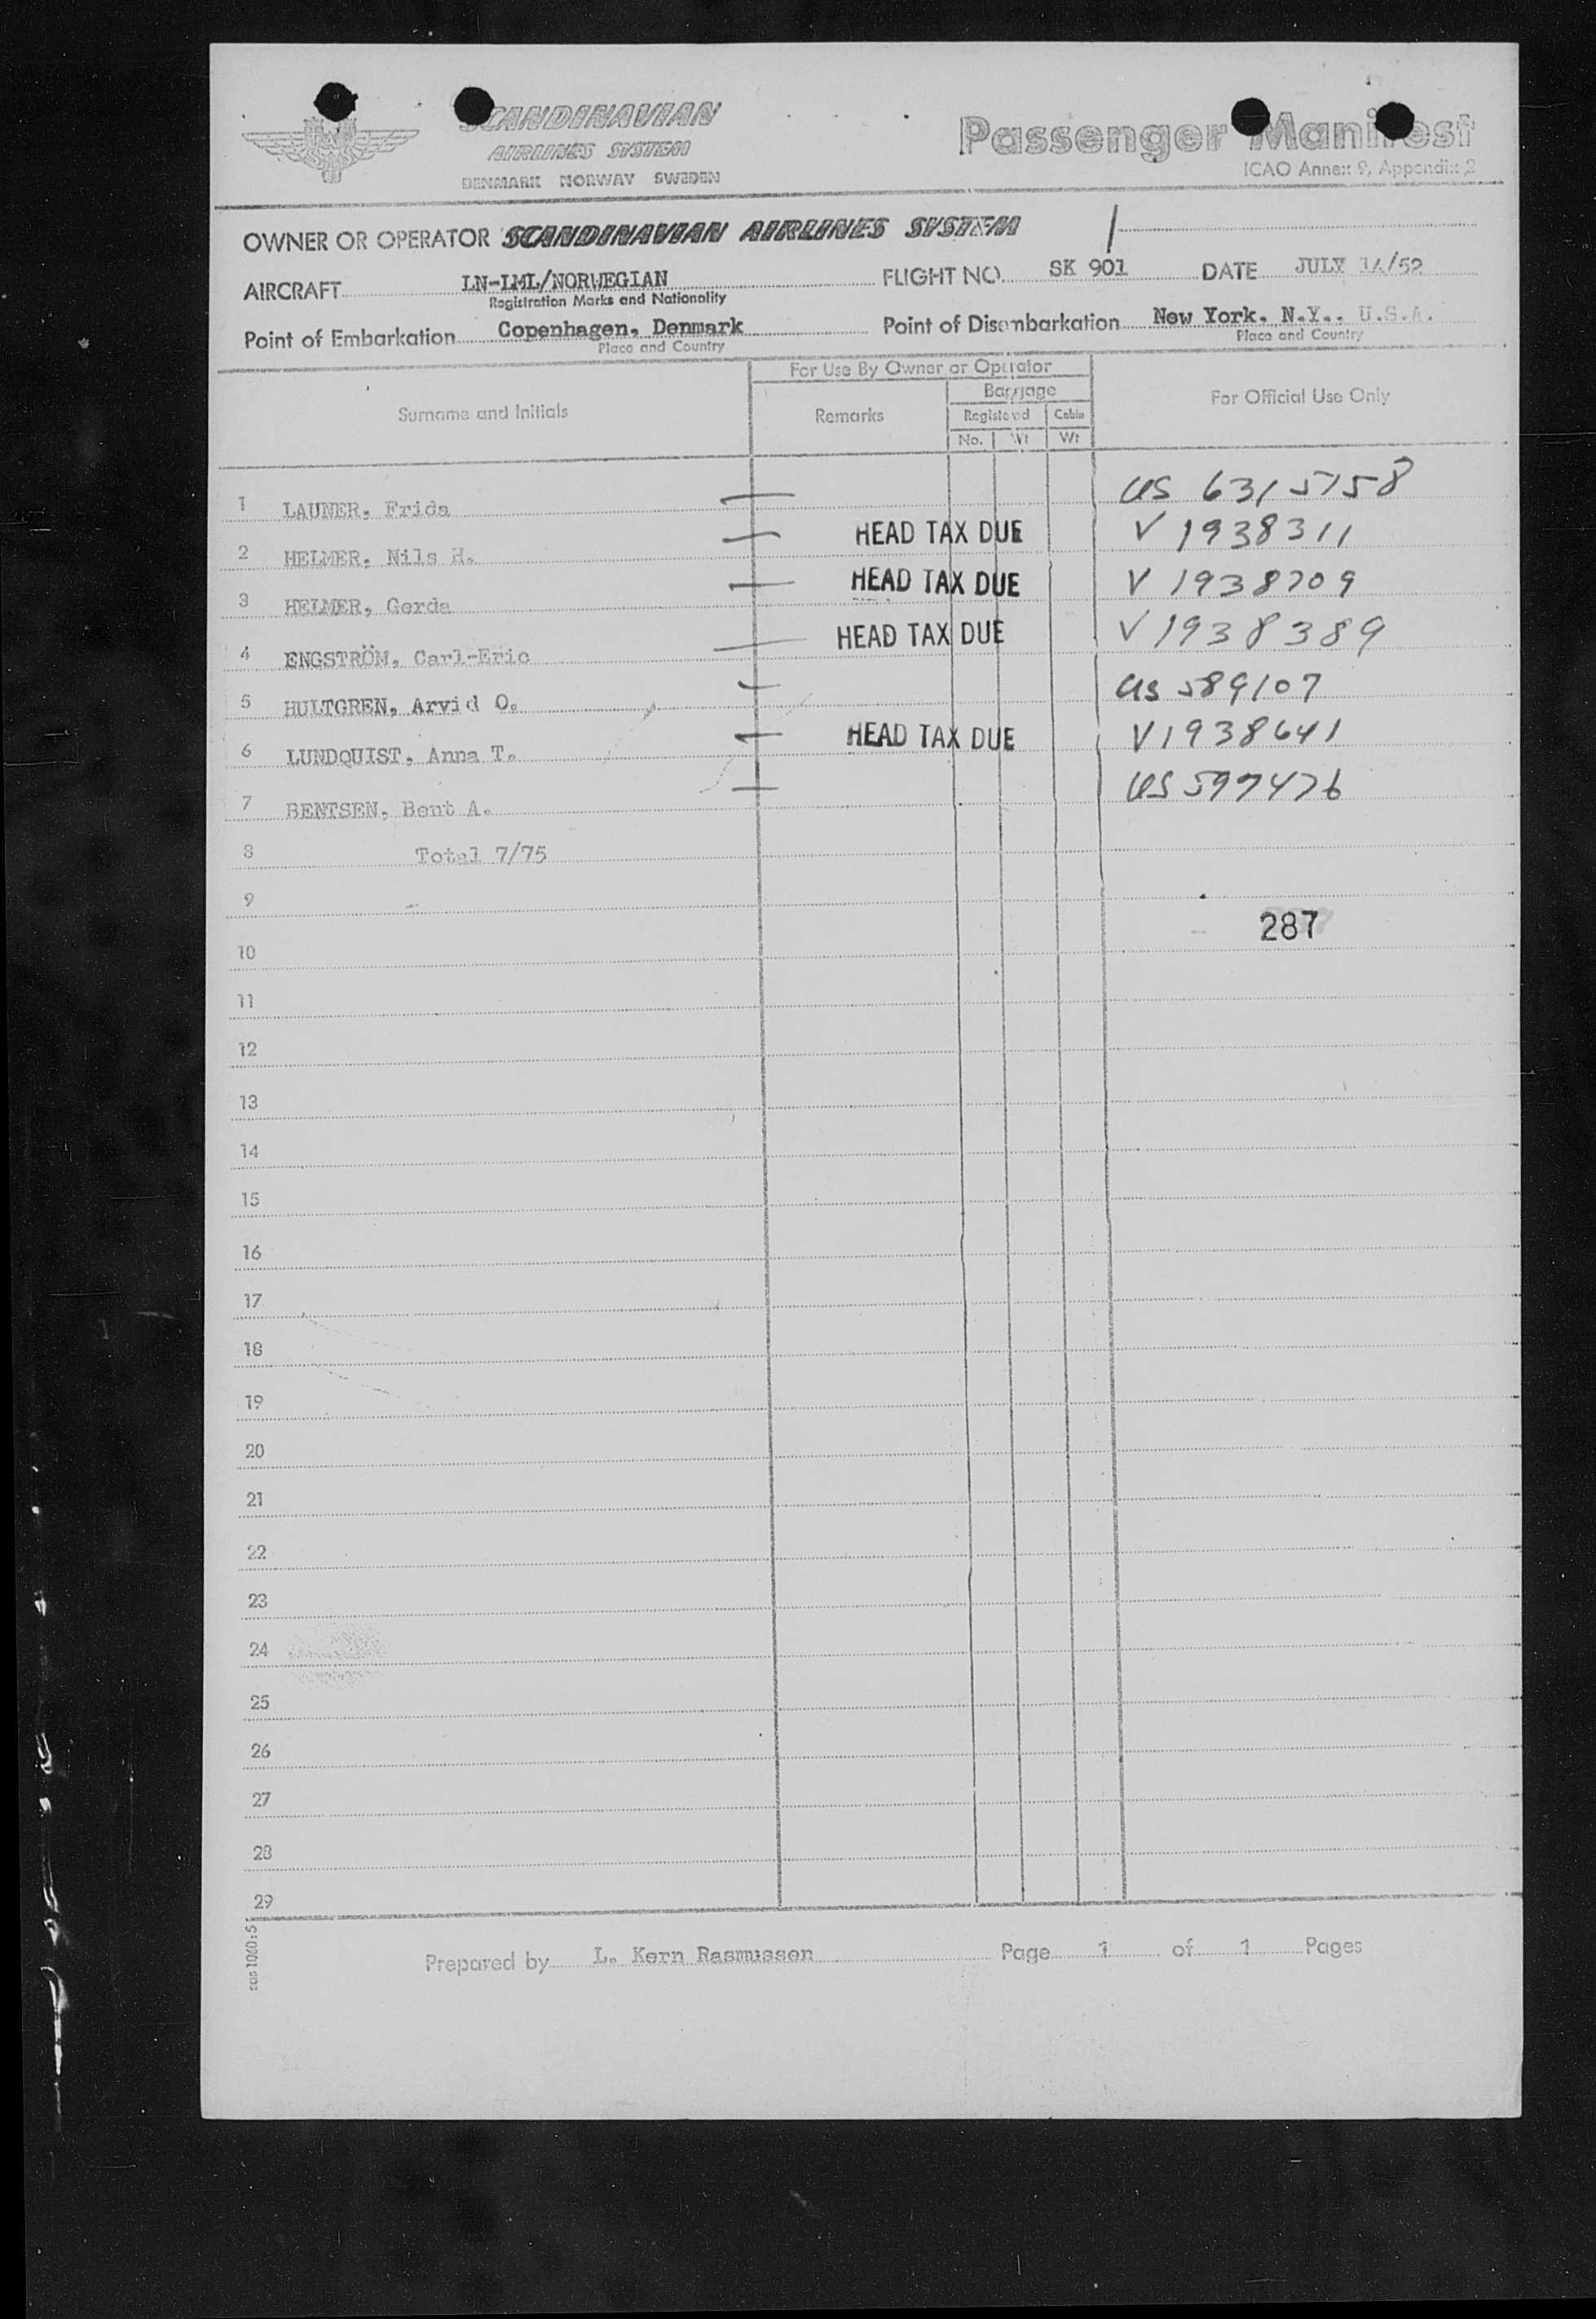 SCANDINAVIAN
AIRLINES SYSTEM
DENMARK NORWAY SWEDEN
Passenger Manifest
ICAO Annex 9, Appendix 2
OWNER OR OPERATOR SCANDINAVIAN AIRLINES SYSTEM
AIRCRAFT LN-LML/NORWEGIAN FLIGHT NO. SK 901 DATE JULY 14/52
Registration Marks and Nationality
Point of Embarkation Copenhagen, Denmark Point of Disembarkation New York, N.Y., U.S.A.
Place and Country Place and Country
For Use By Owner or Operator
Surname and Initials Remarks Baggage For Official Use Only
Registered Cabin
No. Wt Wt
1 LAUNER, Frida US 6315158
2 HELMER, Nils H. HEAD TAX DUE V 1938311
3 HELMER, Gerda HEAD TAX DUE V 1938709
4 ENGSTRÖM, Carl-Eric HEAD TAX DUE V 1938389
5 HULTGREN, Arvid O. US 589107
6 LUNDQUIST, Anna T. HEAD TAX DUE V1938641
7 BENTSEN, Bent A. US 597476
8 Total 7/75
9
287
10
11
12
13
14
15
16
17
18
19
20
21
22
23
24
25
26
27
28
29
sas 1060:5
Prepared by L. Kern Rasmussen Page 1 of 1 Pages